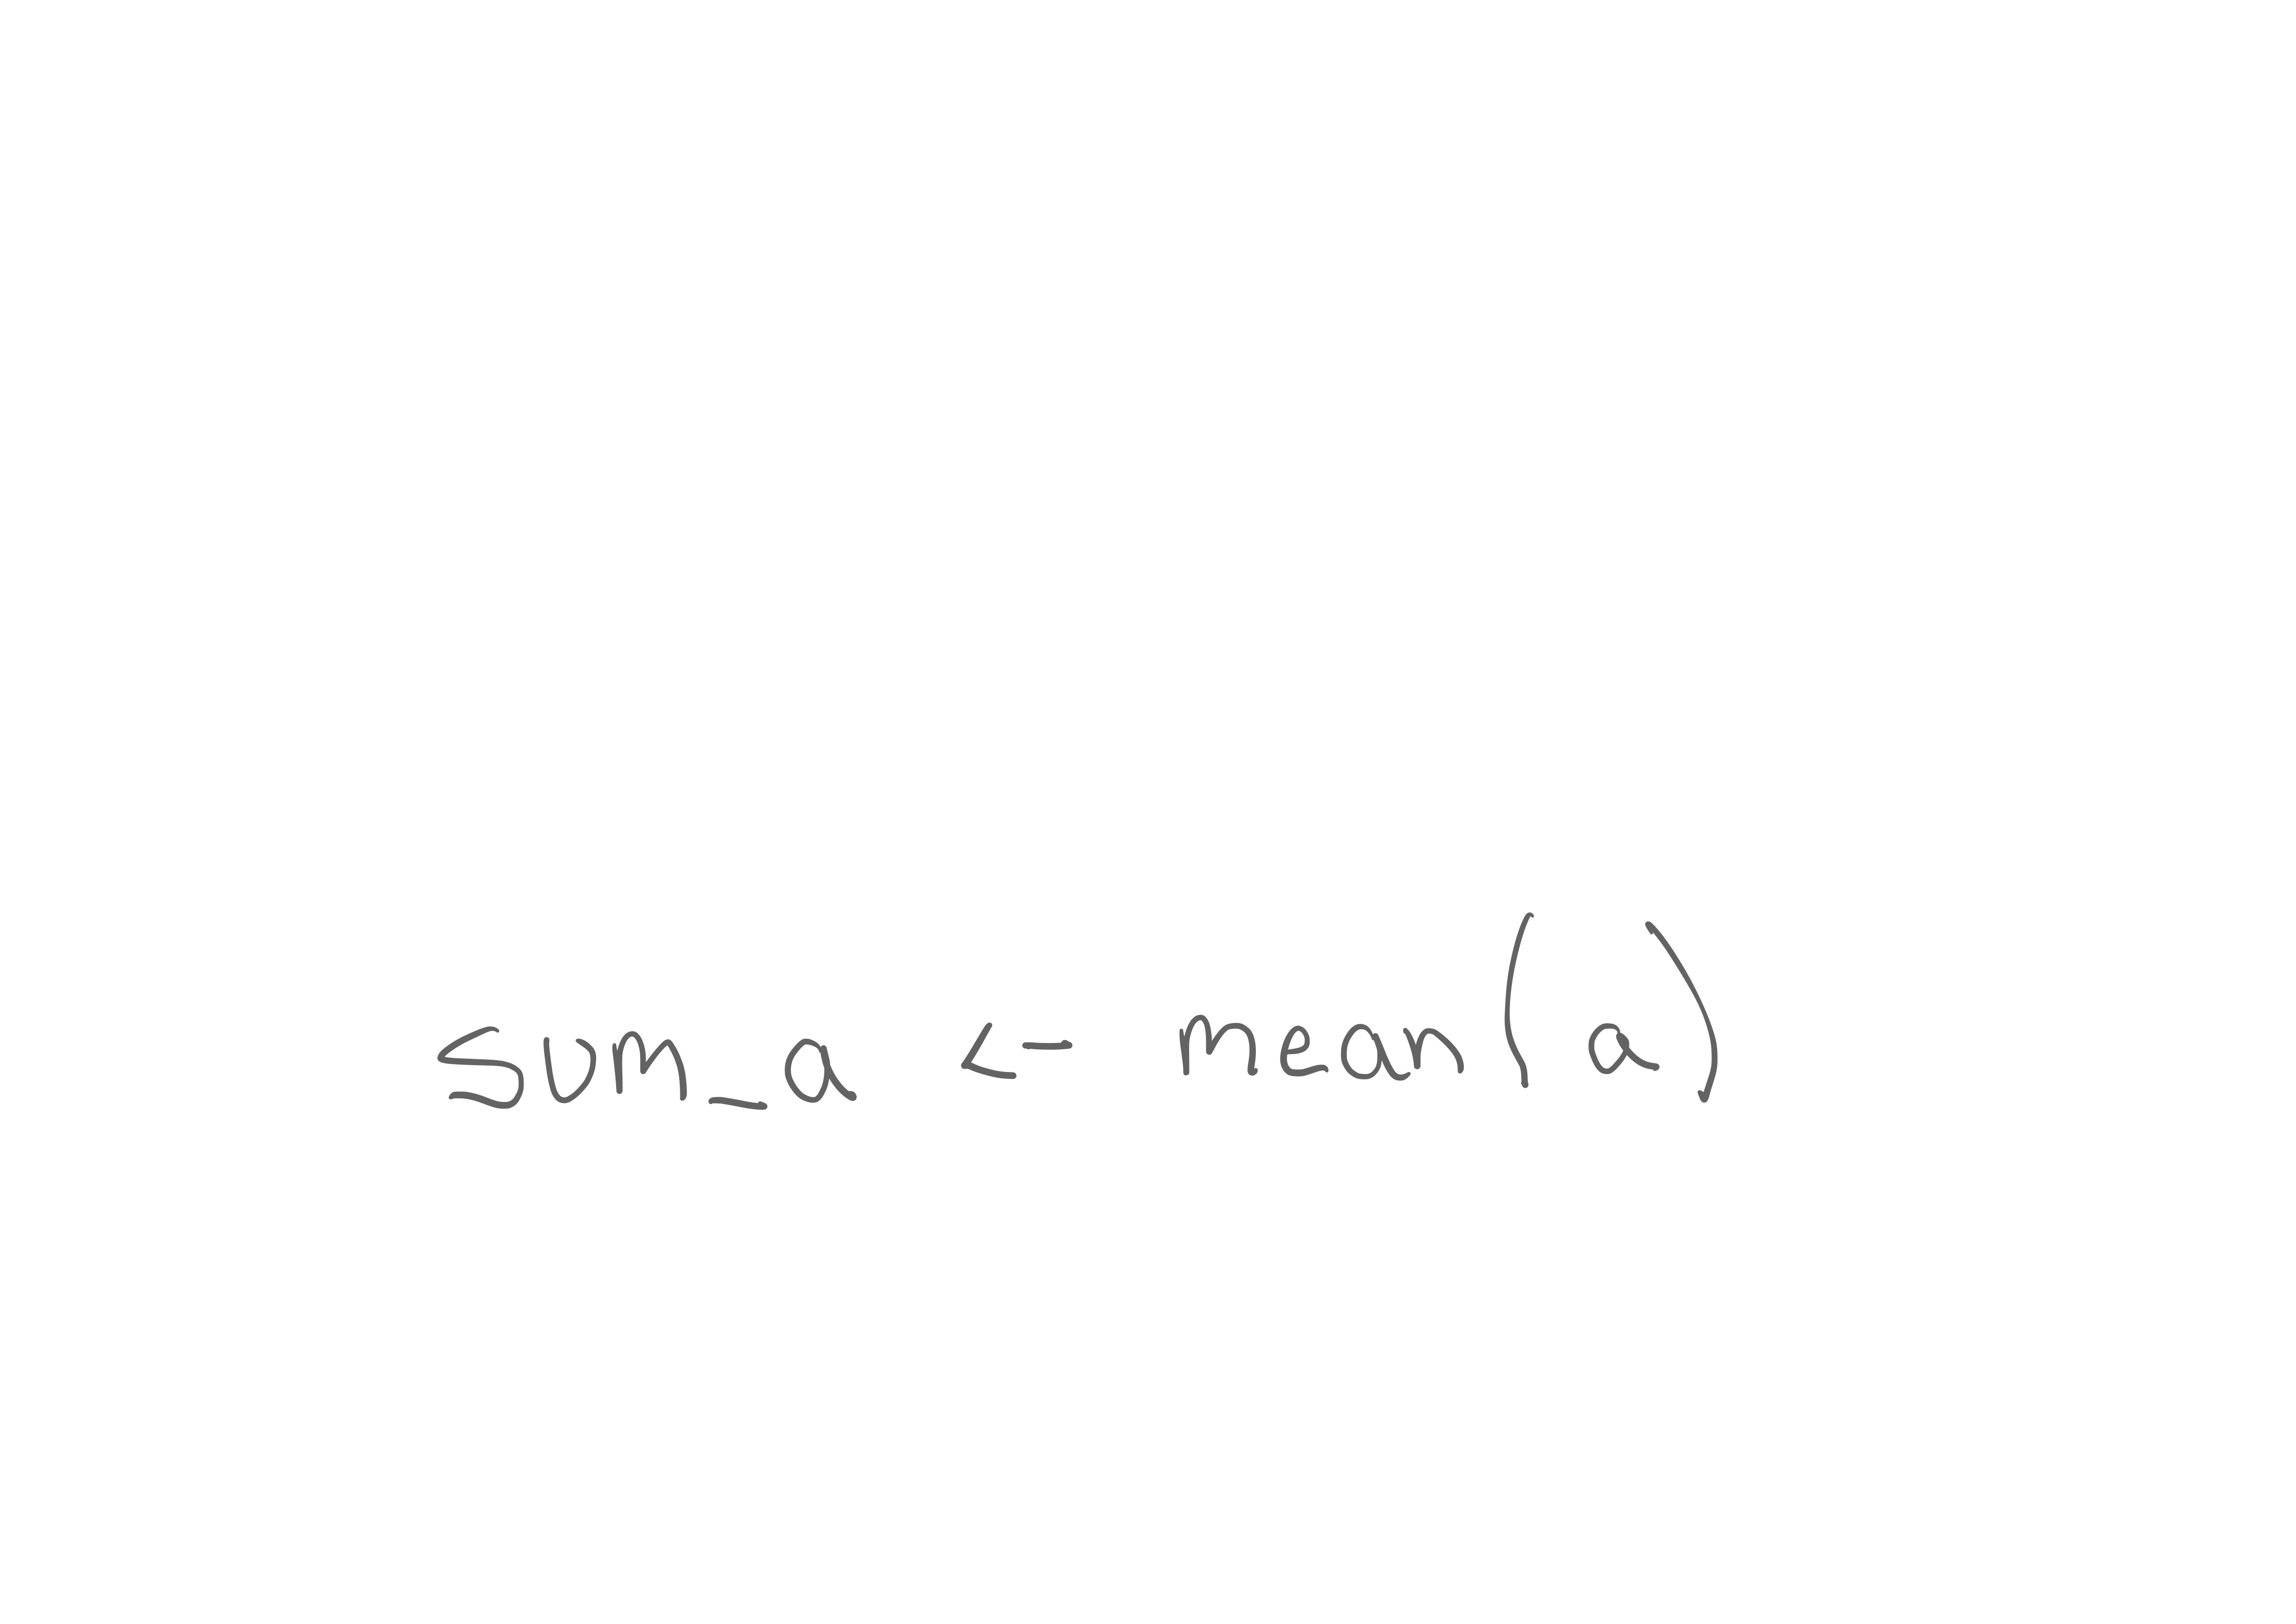 sum_a <- mean(a)